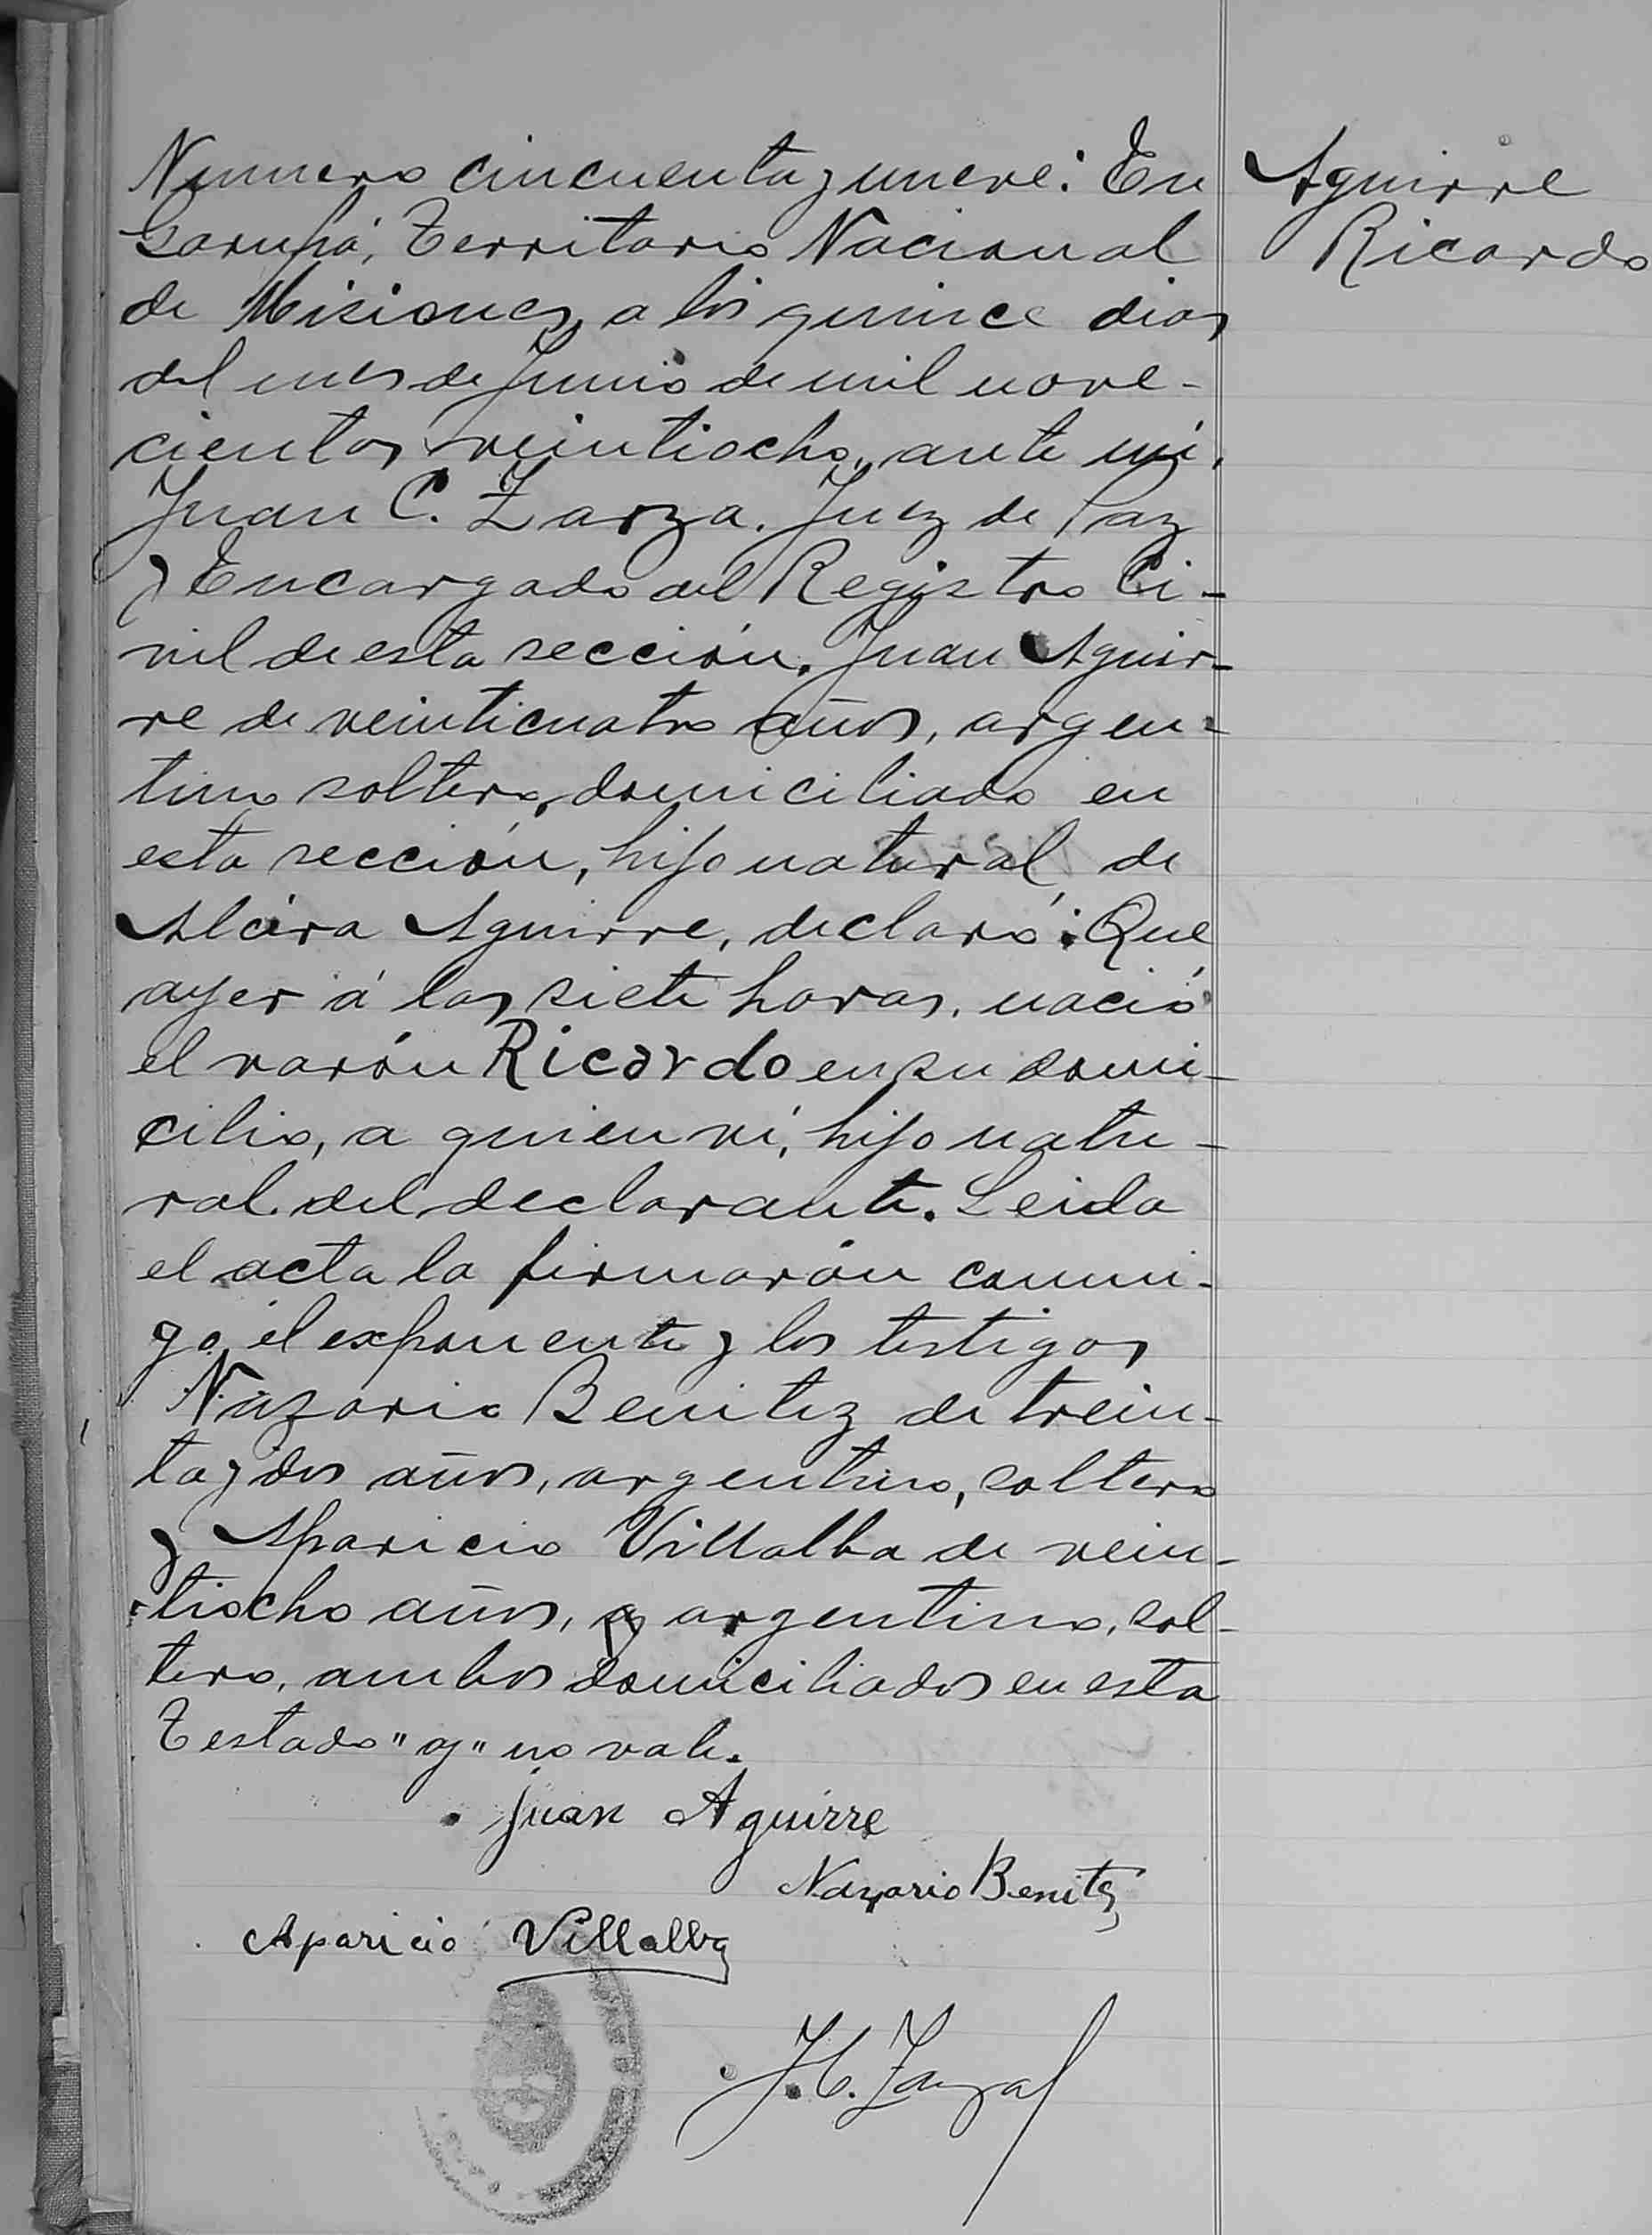 Numero cincuenta y nueve: En
Garupá, Territorio Nacional
de Misiones, a los quince dias
del mes de Junio de mil nove-
cientos veintiocho, ante mi,
Juan C. Zarza. Juez de Paz
y Encargado del Registro Ci-
vil de esta sección. Juan Aguir-
re de veinticuatro años, argen-
tino soltero, domiciliado en
esta sección, hijo natural de
Alcira Aguirre, declaró: Que
ayer á las siete horas, nació
el varón Ricardo en su domi-
cilio, a quien ví, hijo natu-
ral del declarante. Leida
el acta la firmarón conmi-
go, el exponente y los testigos
Nazario Benitez de trein-
ta y dos años, argentino, soltero
y Aparicio Villalba de vein-
tiocho años, a argentino, sol-
tero, ambos domiciliados en esta
Testado "a" no vale.
Juan Aguirre
Nazario Benitez
Aparicio Villalba
J. C. Zarza
Aguirre
Ricardo